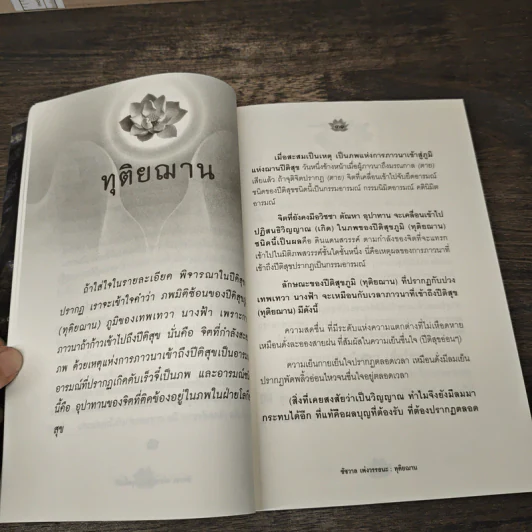 ทุติยฌาน
ถ้าใส่ใจในรายละเอียด พิจารณาในปีติสุข
ปรากฏ เราจะเข้าใจคำว่า ภพมิติซ้อนของปีติสุขภู
(ทุติยฌาน) ภูมิของเทพเทวา นางฟ้า เพราะการ
ภาวนาถ้าก้าวเข้าไปถึงปีติสุข นั่นคือ จิตที่กำลังสะสม
ภพ ด้วยเหตุแห่งการภาวนาเข้าถึงปีติสุขเป็นอารมณ์
อารมณ์ที่ปรากฏเกิดดับเร็วจี๋เป็นภพ และอารมณ์ชนิด
นี้คือ อุปาทานของจิตที่ติดข้องอยู่ในภพในฝ่ายโลกีย
สุข
เมื่อสะสมเป็นเหตุ เป็นภพแห่งการภาวนาเข้าสู่ภูมิ
แห่งฌานปีติสุข วันหนึ่งข้างหน้าเมื่อผู้ภาวนาถึงมรณกาล (ตาย)
เสียแล้ว ถ้าจุติจิตปรากฏ (ตาย) จิตที่เคลื่อนเข้าไปรับยึดอารมณ์
ชนิดของปีติสุขชนิดนี้เป็นกรรมอารมณ์ กรรมนิมิตอารมณ์ คตินิมิต
อารมณ์
จิตที่ยังคงมีอวิชชา ตัณหา อุปาทาน จะเคลื่อนเข้าไป
ปฏิสนธิวิญญาณ (เกิด) ในภพของปีติสุขภูมิ (ทุติยฌาน)
ชนิดนี้เป็นผลคือ ดินแดนสวรรค์ ตามกำลังของจิตที่จะแทรก
เข้าไปในมิติภพสวรรค์ชั้นใดชั้นหนึ่ง นี่คือเหตุผลของการภาวนาที่
เข้าถึงปีติสุขปรากฏเป็นกรรมอารมณ์
ลักษณะของปีติสุขภูมิ (ทุติยฌาน) ที่ปรากฏกับปวง
เทพเทวา นางฟ้า จะเหมือนกับเวลาภาวนาที่เข้าถึงปีติสุข
(ทุติยฌาน) มีดังนี้
ความสดชื่น ที่มีระดับแห่งความแตกต่างที่ไม่เหือดหาย
เหมือนดั่งละอองสายฝน ที่สัมผัสในความเย็นชื่นใจ (ปีติสุขอ่อนๆ)
ความเย็นกายเย็นใจปรากฏตลอดเวลา เหมือนดั่งมีลมเย็น
ปรากฏพัดพลิ้วอ่อนไหวจนชื่นใจอยู่ตลอดเวลา
(สิ่งที่เคยสงสัยว่าเป็นวิญญาณ ทำไมจึงยังมีลมมา
กระทบได้อีก ที่แท้คือผลบุญที่ต้องรับ ที่ต้องปรากฏตลอด
ชัชวาล เพ่งวรรธนะ : ทุติยฌาน